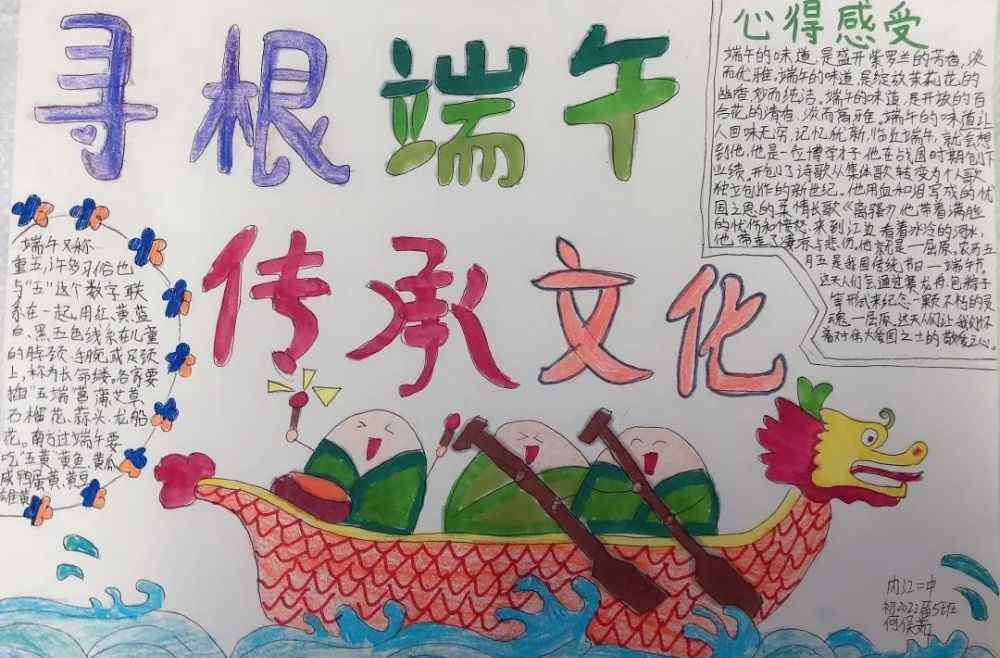 寻根端午
传承文化
心得感受
端午的味道,是盛开紫罗兰的芳香,淡
而优雅,端午的味道,是绽放茉莉花的
幽香,妙而纯洁。端午的味道,是开放的百
合花的清香,淡而高雅,端午的味道让
人回味无穷,记忆犹新,临近端午,就会想
到他,他是一位博学才子,他在战国时期创下
业绩,开创了诗歌从集体歌转变为个人歌
独立创作的新世纪。他用血和泪写成的忧
国之思的柔情长歌《离骚》他带着满脸
的忧伤和愤怒,来到江边,看着冰冷的河水,
他,带走了青春与悲伤,他就是—屈原,农历五
月五是我国传统节日—端午节,
这天人们会通过赛龙舟,包粽子
等形式来纪念一颗不朽的灵
魂—屈原,这天人们让我们怀
着对伟大爱国之士的敬爱之心。
端午又称
重五,许多习俗也
与"五"这个数字联
系在一起。用红、黄、蓝
白、黑五色线系在儿童
的脖颈、手腕或足颈
上,称为长命缕。各家要
插"五端"菖蒲、艾草,
石榴花、蒜头、龙船
花。南方过端午要
吃"五黄"黄鱼、黄瓜
咸鸭蛋黄、黄豆
雄黄
内江二中
初2022届5班
何